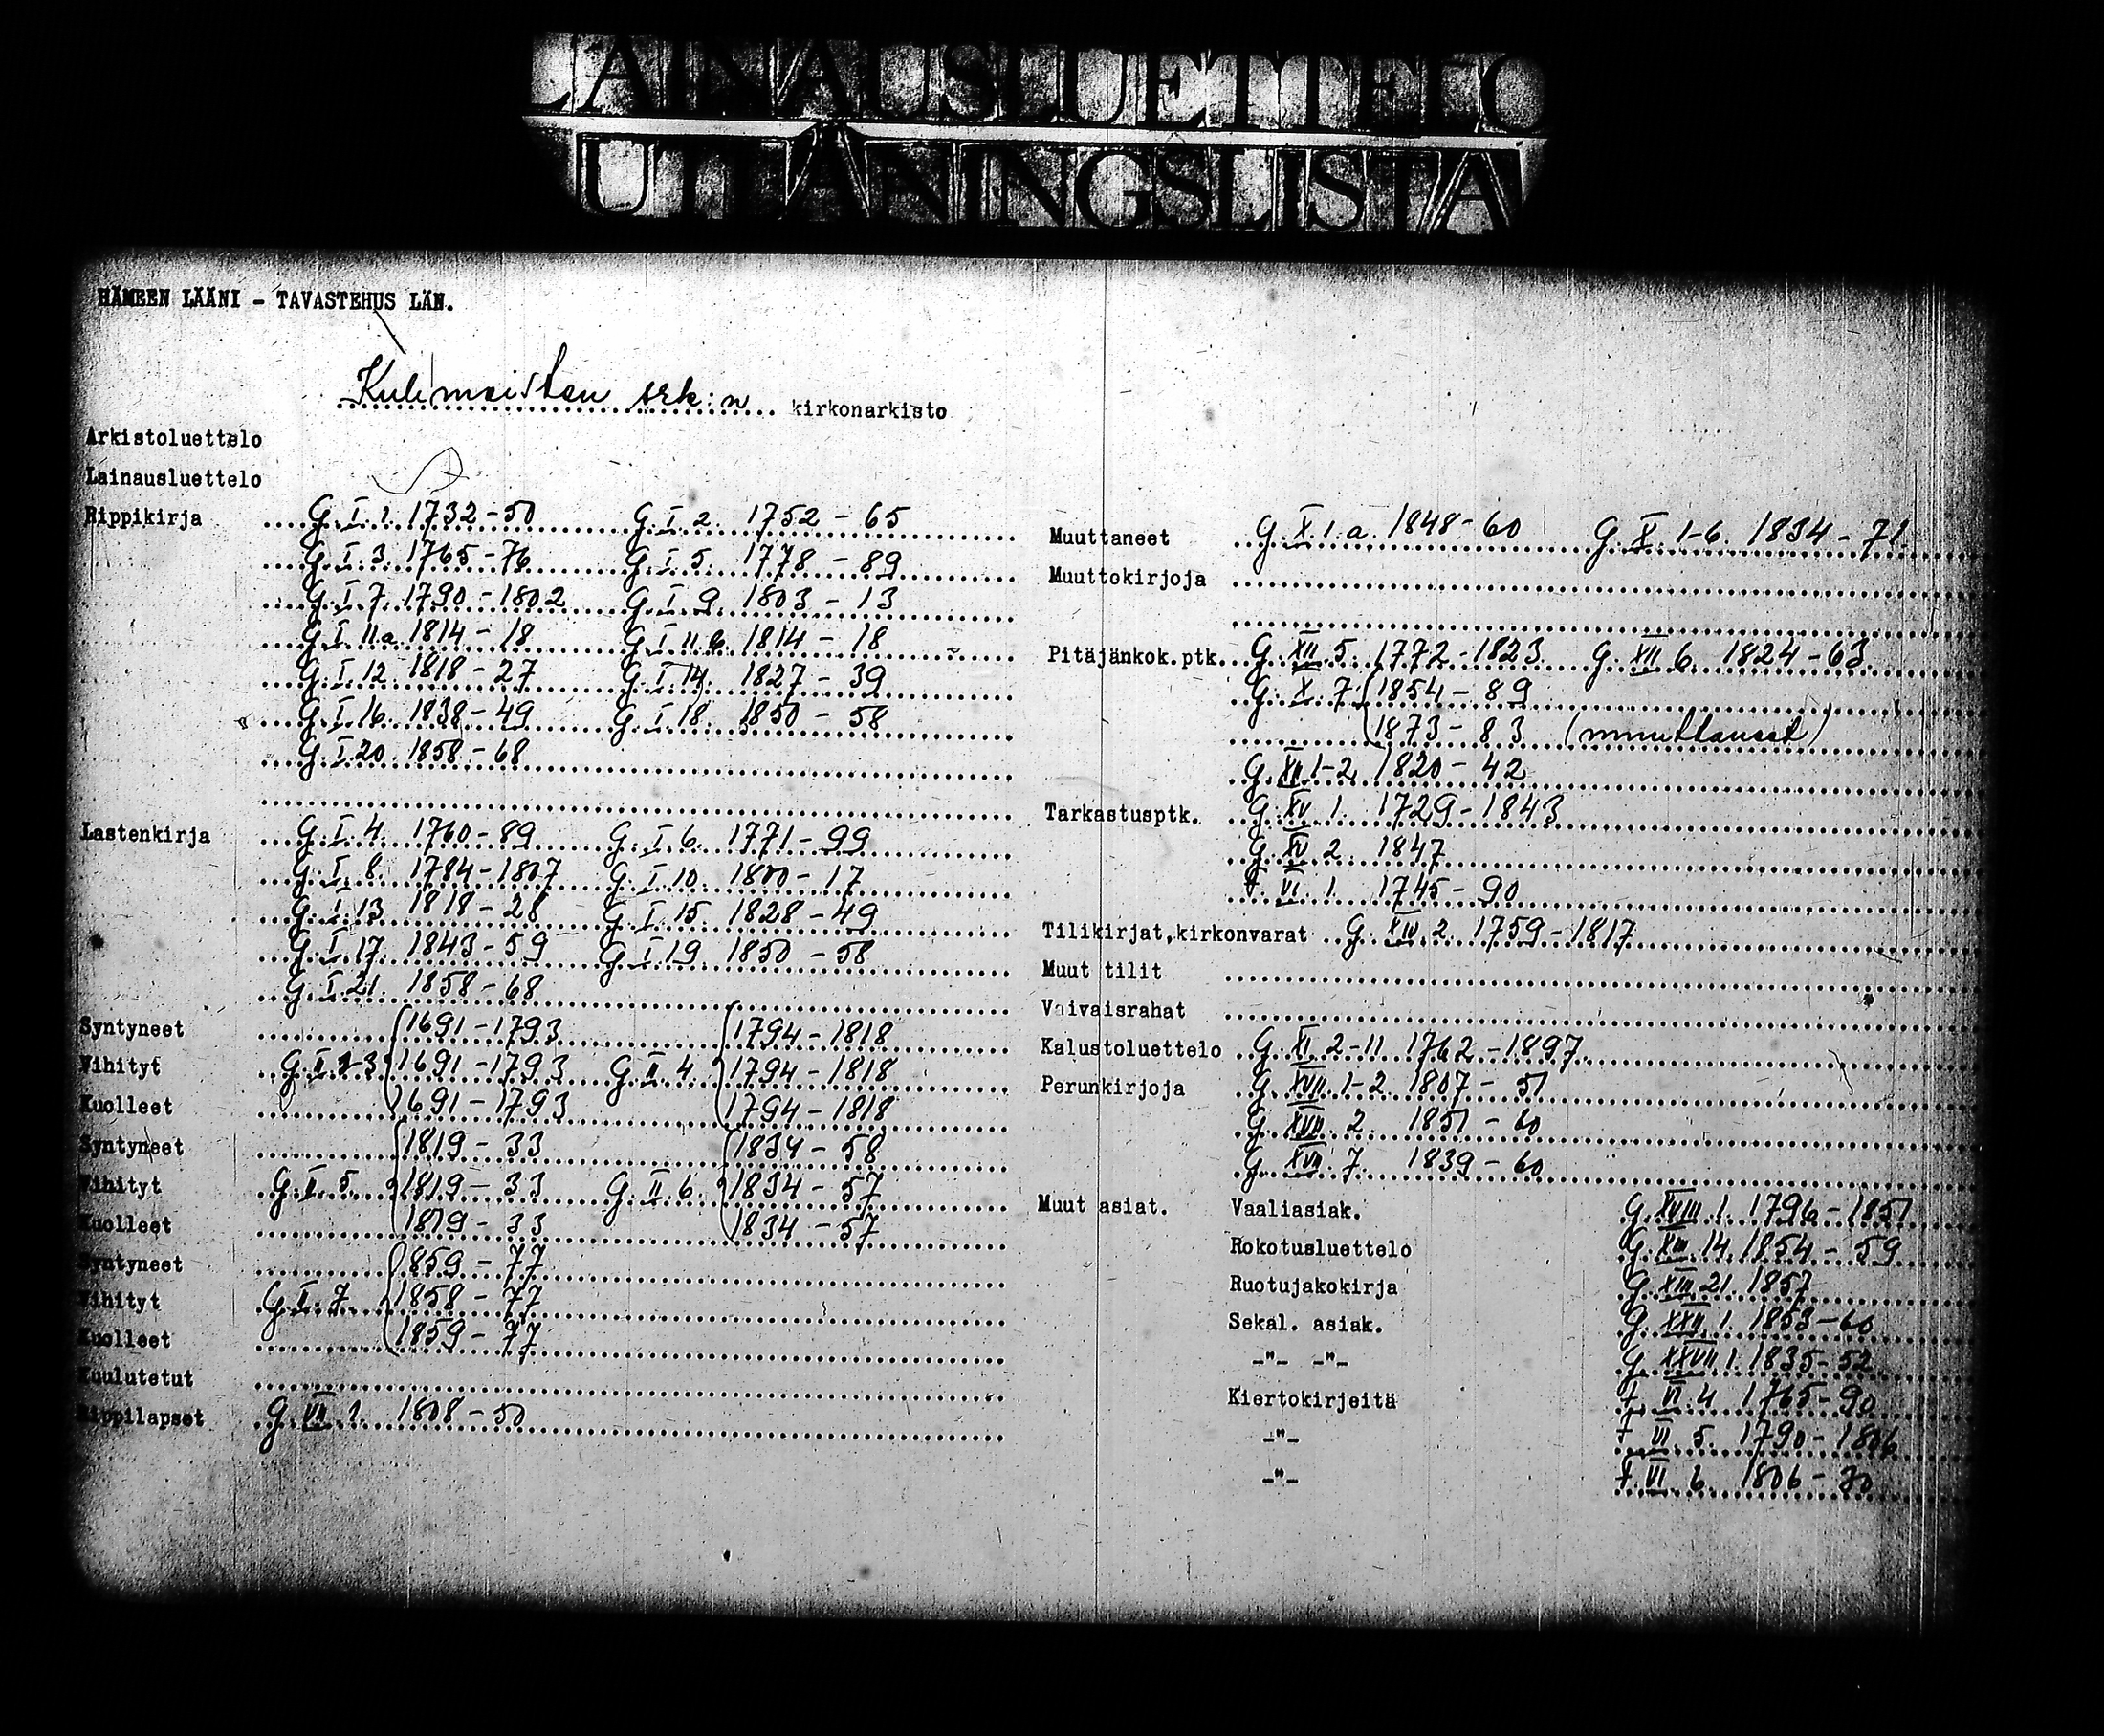 LAINAUSLUETTELO
UTLÅNINGSLISTA
HÄMEEN LÄÄNI - TAVASTEHUS LÄN.
Kulsmaisten srk:n kirkonarkisto
Arkistoluettelo
Lainausluettelo
Rippikirja G. I. 1. 1732-50 G. I. 2. 1752-65
G. I. 3. 1765-76 G. I. 5. 1778-89
G. I. 7. 1790-1802 G. I. 9. 1803-13
G. I. 11a. 1814-18 G. I. 11b. 1814-18
G. I. 12. 1818-27 G. I. 14. 1827-39
G. I. 16. 1838-49 G. I. 18. 1850-58
G. I. 20. 1858-68
Lastenkirja G. I. 4. 1760-89 G. I. 6. 1771-99
G. I. 8. 1784-1807 G. I. 10. 1800-17
G. I. 13. 1818-28 G. I. 15. 1828-49
G. I. 17. 1843-59 G. I. 19. 1850-58
G. I. 21. 1858-68
Syntyneet 1691-1793 1794-1818
Vihityt G. II. 1-3 1691-1793 G. II. 4. 1794-1818
Kuolleet 1691-1793 1794-1818
Syntyneet 1819-33 1834-58
Vihityt G. II. 5. 1819-33 G. II. 6. 1834-57
Kuolleet 1819-33 1834-57
Syntyneet 1859-77
Vihityt G. II. 7. 1858-77
Kuolleet 1859-77
Kuulutetut
Rippilapset G. VII. 1. 1808-50
Muuttaneet G. X. 1. a. 1848-60 G. X. 1-6. 1834-71
Muuttokirjoja
Pitäjänkok.ptk. G. XII. 5. 1772-1823. G. XII. 6. 1824-63.
G. X. 7. 1854-89
1873-83 (muuttaneet)
G. XII. 1-2. 1820-42
Tarkastusptk. G. XV. 1. 1729-1843
G. XV. 2. 1847
f. VI. 1. 1745-90
Tilikirjat,kirkonvarat G. XIV. 2. 1759-1817
Muut tilit
Vaivaisrahat
Kalustoluettelo G. XI. 2-11. 1762-1897
Perunkirjoja G. XVII. 1-2. 1807-51
G. XVII. 2. 1851-60
G. XVII. 7. 1839-60
Muut asiat. Vaaliasiak. G. XVIII. 1. 1796-1851
Rokotusluettelo G. XIII. 14. 1854-59
Ruotujakokirja G. XIII. 21. 1857
Sekal. asiak. G. XXII. 1. 1853-60
-"- -"- G. XXVII. 1. 1835-52
Kiertokirjeitä f. VI. 4. 1765-90
-"- f. VI. 5. 1790-1806
-"- f. VI. 6. 1806-30